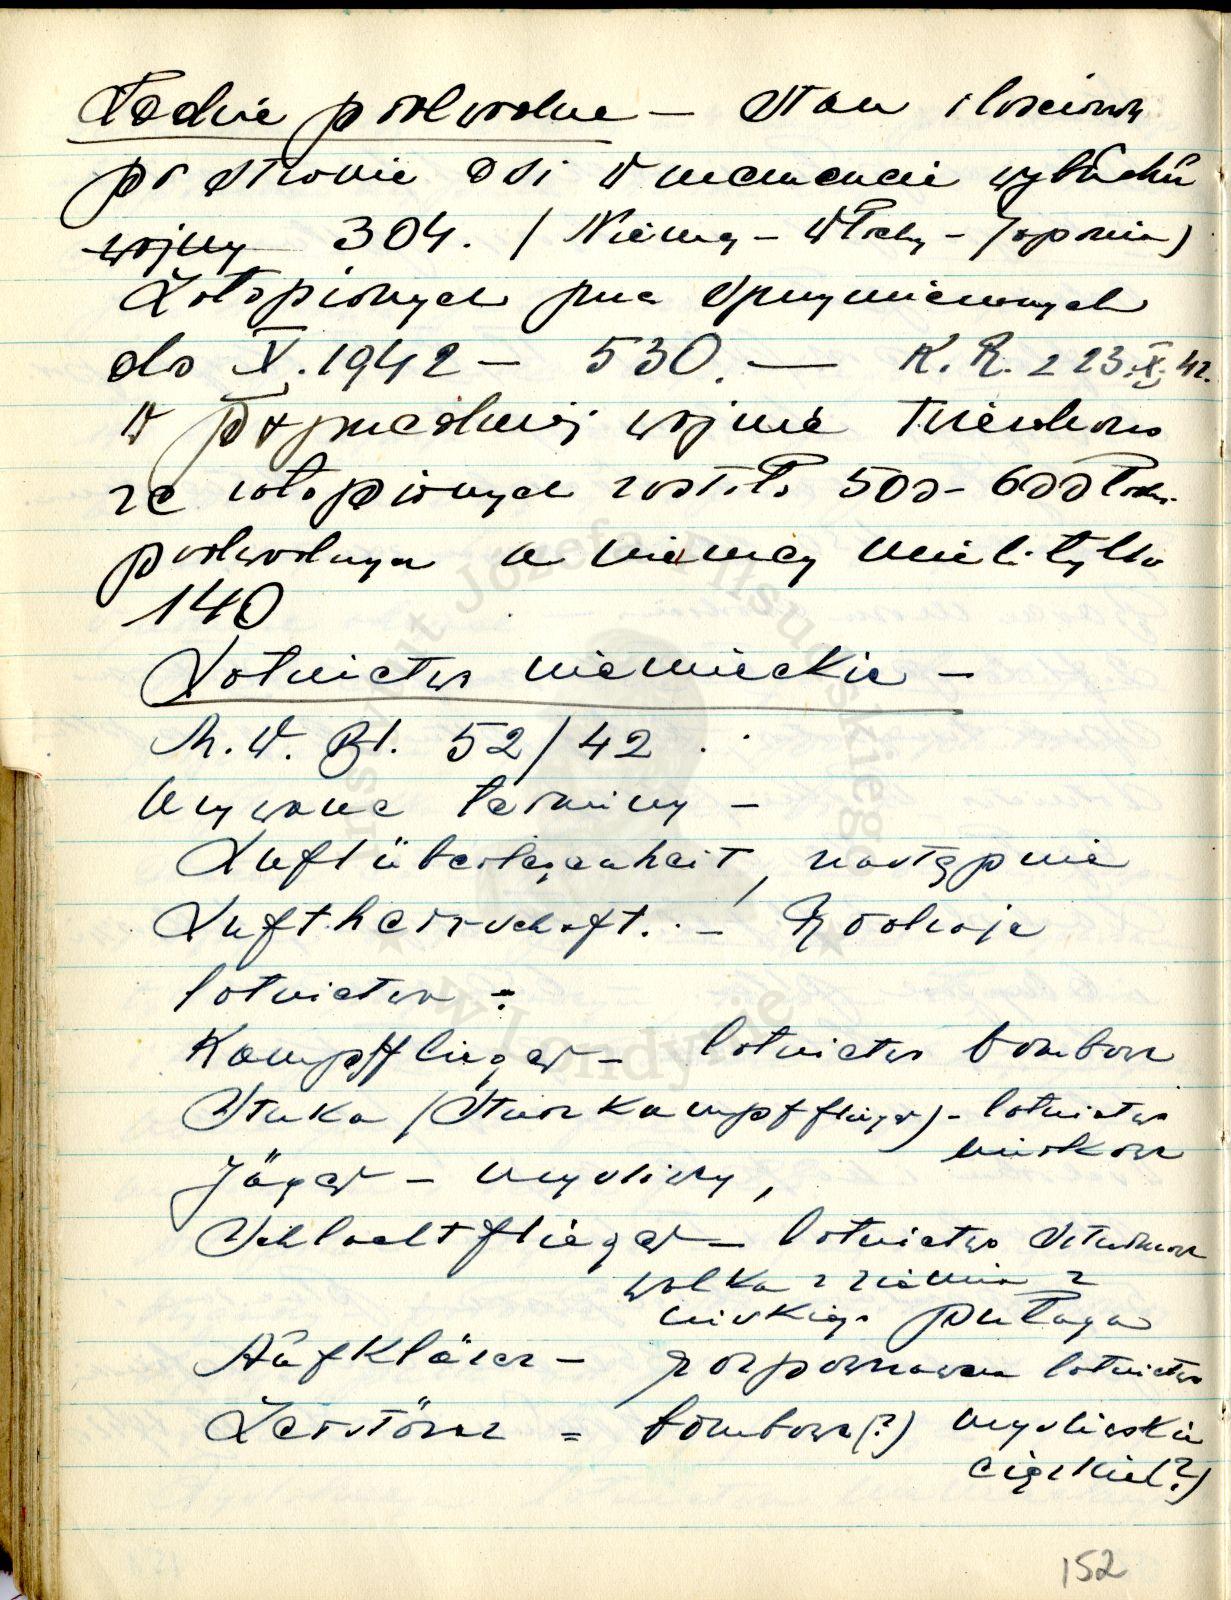 Łodzie podwodne — Stan ilościowy
po stronie osi w momencie wybuchu
wojny 304. (Niemcy – Włochy – Japonia)
Zatopionych przez sprzymierzonych
do X.1942 — 530. — K.R. z 23.X.42.
W poprzedniej wojnie twierdzono
że zatopionych zostało 500–600 łodzi
podwodnych a niemcy mieli tylko
140
Lotnictwo niemieckie —
M.W.Bl. 52/42
Używane terminy —
Luftüberlegenheit, następnie
Luftherrschaft. — Rodzaje
lotnictwa:
Kampfflieger — lotnictwo bombow
Stuka (Sturzkampfflieger) – lotnictwo
nurkow
Jäger — myśliwy,
Schlachtflieger — lotnictwo szturmow
walka z ziemią z
niskiego pułapu
Aufklärer — rozpoznawcze lotnictwo
Zerstörer = bombowe(?) myśliwskie
ciężkie(?)
152
Instytut Józefa Piłsudskiego
w Londynie